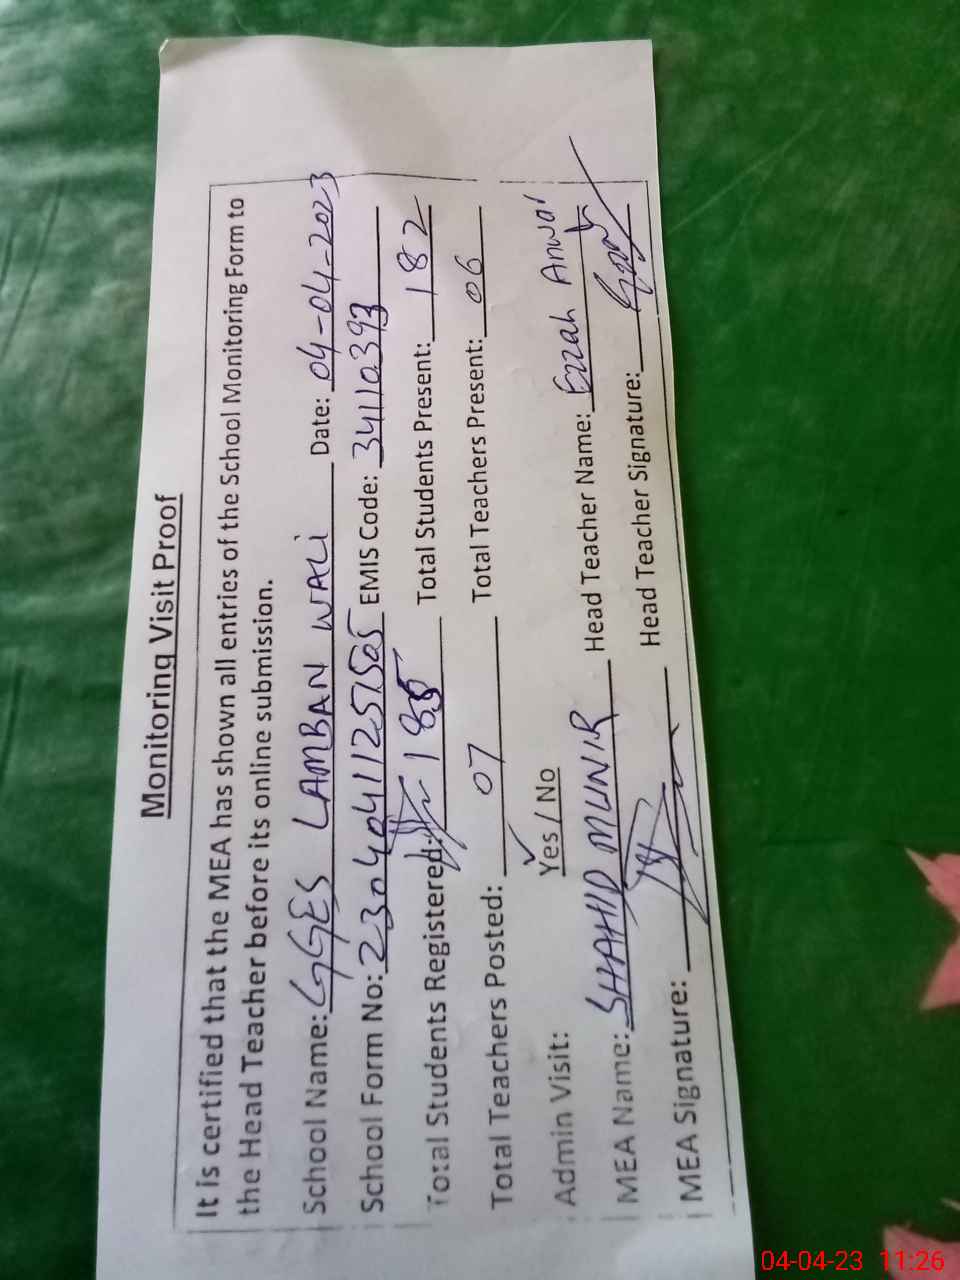 Monitoring Visit Proof
It is certified that the MEA has shown all entries of the School Monitoring Form to
the Head Teacher before its online submission.
School Name: GGES LAMBAN WALI Date: 04-04-2023
School Form No: 23040411257505 EMIS Code: 34110393
Total Students Registered: 185 Total Students Present: 182
Total Teachers Posted: 07 Total Teachers Present: 06
Admin Visit: Yes / No
MEA Name: SHAHID MUNIR Head Teacher Name: Ezzah Anwar
MEA Signature: Head Teacher Signature:
04-04-23 11:26